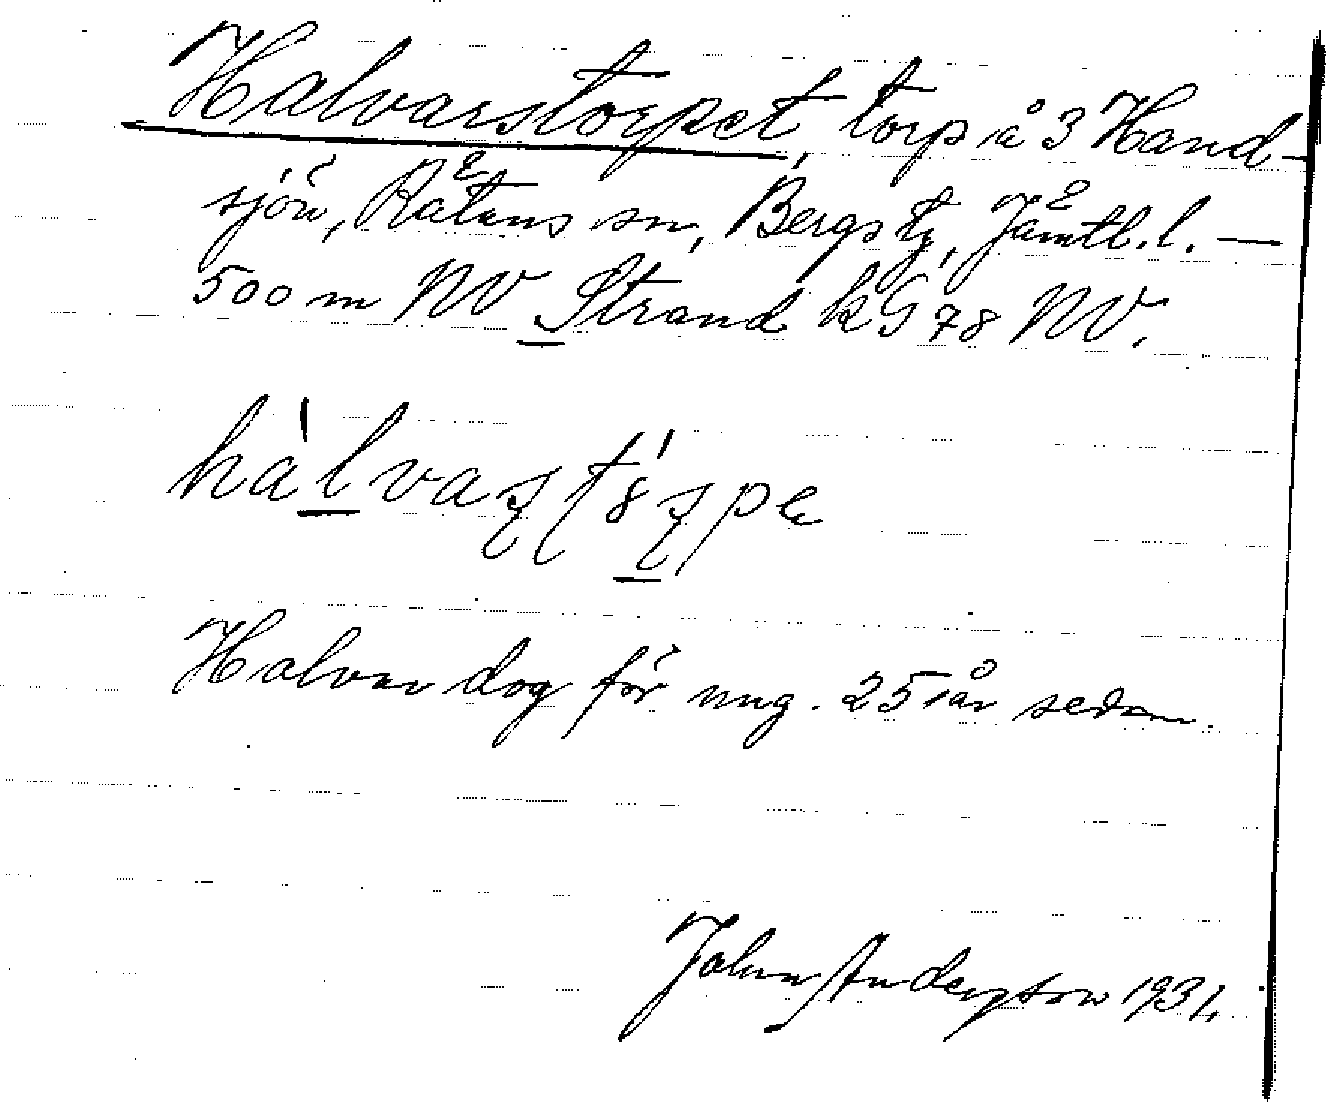 Halvarstorpet, torp å 3 Hand-
sjön, Rätans sn, Bergs tg, Jämtl. l. —
500 m NV Strand kG 78 NV.
Halvar dog för ung. 25 år sedan.
John Anderzson 1931.